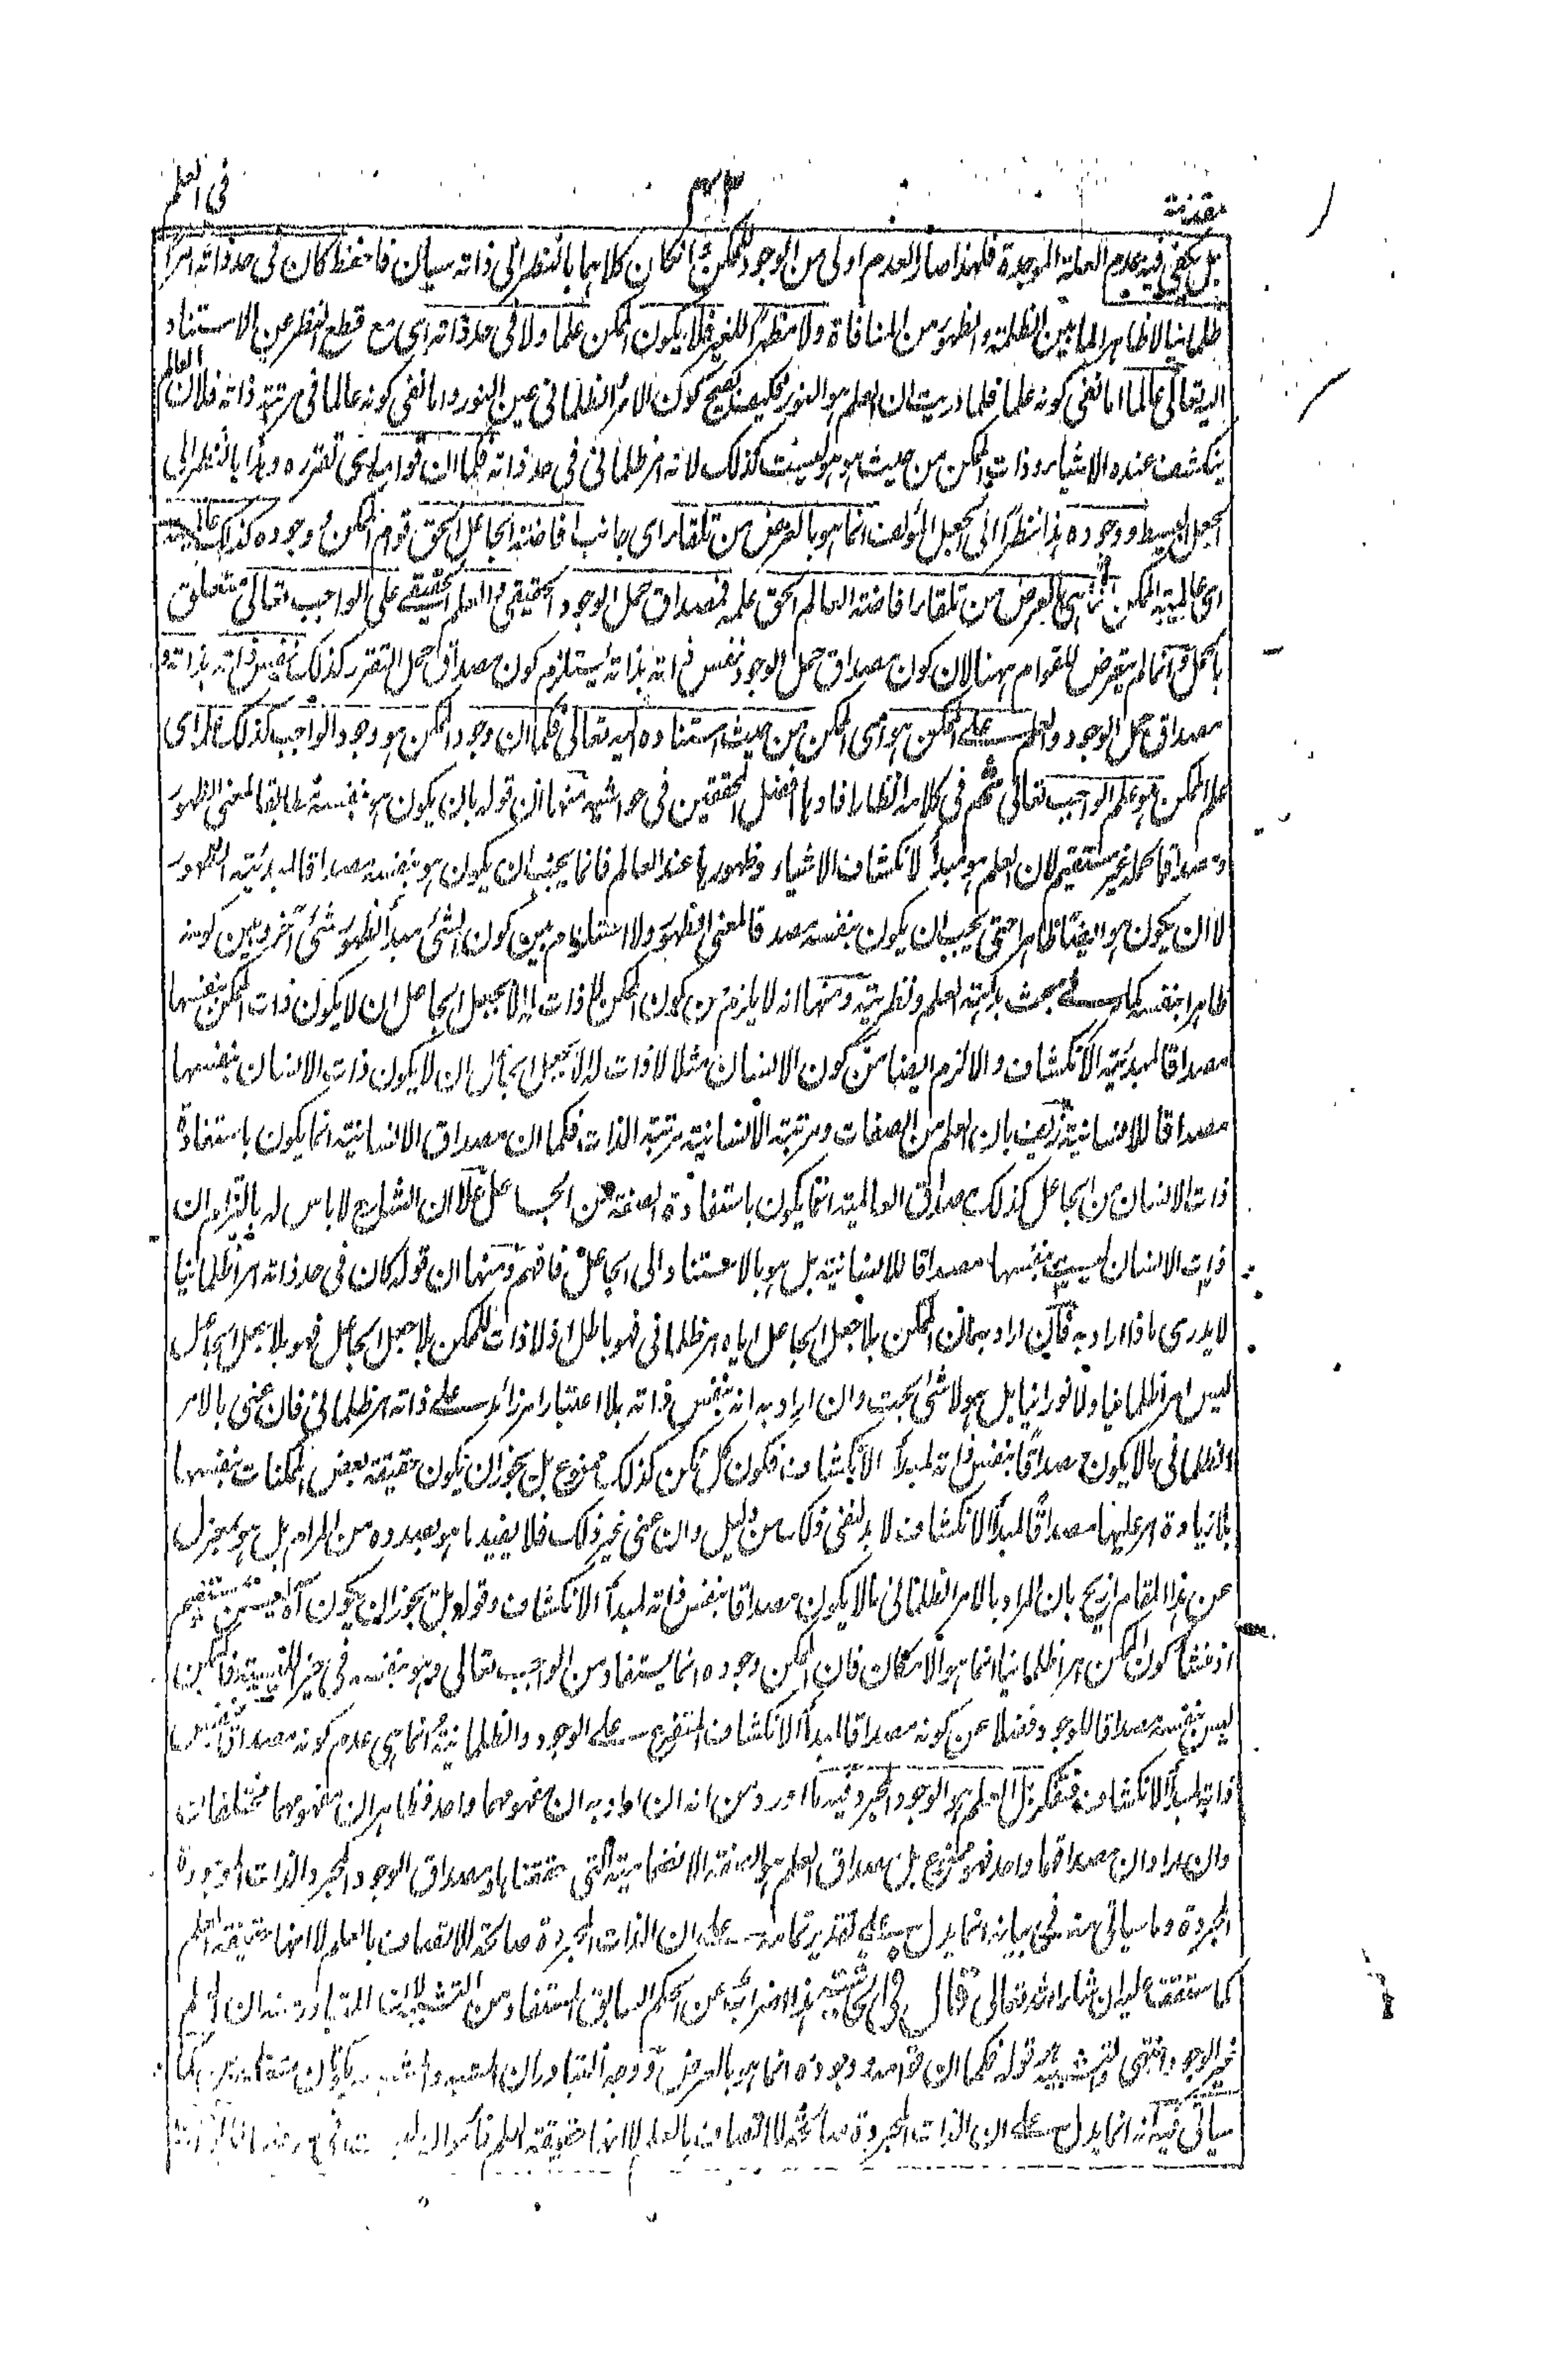 مقدمة
٤٣
فى العلم
بل يكفى فيه عدم العلة الموجدة فلهذا صار العدم اولى من الوجود للممكن وان كان كلاهما بالنظر الى ذاته سيان فاحفظ كان فى حد ذاته امرا
ظلمانيا لا ظاهرا لما بين الظلمة والظهور من المنافاة ولا مظهرا للغير فلا يكون الممكن علما ولا فى حد ذاته اى مع قطع النظر عن الاستناد
اليه تعالى عالما اما نفى كونه علما فلما دريت ان العلم هو النور فكيف يصح كون الامر الظلمانى عين النور واما نفى كونه عالما فى مرتبة ذاته فلان العالم
ينكشف عنده الاشياء وذات الممكن من حيث هو هو ليست كذلك لانه امر ظلمانى فى حد ذاته فكما ان قوامه اى تقرره وهذا بالنظر الى
الجعل البسيط ووجوده هذا نظرا الى الجعل المؤلف انما هو بالعرض من تلقاء اى جانب افاضة الجاعل الحق قوام الممكن ووجوده كذلك عالميته
اى عالمية الممكن انما هى بالعرض من تلقاء افاضة العالم الحق علمه فمصداق حمل الوجود الحقيقى والعلم الحقيقى على الواجب تعالى متعلق
بالحمل وانما لم يتعرض للقوام ههنا لان كون مصداق حمل الوجود نفس ذاته بذاته يستلزم كون مصداق حمل التقرر كذلك نفس ذاته بذاته و
مصداق حمل الوجود والعلم على الممكن هو اى الممكن من حيث استناده اليه تعالى فكما ان وجود الممكن هو وجود الواجب كذلك علمه اى
علم الممكن هو علم الواجب تعالى ثم فى كلامه انظار افادها افضل المحققين فى حواشيه منها ان قوله بان يكون هو بنفسه مطابقا لمعنى الظهور
ومصداقا لحمله غير مستقيم لان العلم هو مبدأ لانكشاف الاشياء وظهورها عند العالم فانما يجب ان يكون هو بنفسه مصداقا لمبدئية الظهور
لا ان يكون هو ايضا ظاهرا حتى يجب ان يكون بنفسه مصدقا لمعنى الظهور ولا استلزام بين كون الشئ مبدأ لظهور شئ آخر وبين كونه
ظاهرا بنفسه كما فى بحث بداهة العلم ونظريته ومنها انه لا يلزم من كون الممكن لا ذات له الا بجعل الجاعل ان لا يكون ذات الممكن بنفسها
مصداقا لمبدئية الانكشاف والا لزم ايضا من كون الانسان مثلا لا ذات له الا بجعل الجاعل ان لا يكون ذات الانسان بنفسها
مصداقا للانسانية وزيف بان العلم من الصفات ومرتبة الانسانية مرتبة الذات فكما ان مصداق الانسانية انما يكون باستفادة
ذات الانسان من الجاعل كذلك مصداق العالمية انما يكون باستفادة الصفة من الجاعل على ان الشارح لا باس له بالتزام ان
ذات الانسان ليست بنفسها مصداقا للانسانية بل هو بالاستناد الى الجاعل فافهم ومنها ان قوله كان فى حد ذاته امرا ظلمانيا
لا يدرى ماذا اراد به فان اراد به ان الممكن بلا جعل الجاعل اياه امر ظلمانى فهو باطل اذ لا ذات للممكن بلا جعل الجاعل فهو بلا جعل الجاعل
ليس امرا ظلمانيا ولا نورانيا بل هو لا شئ بحت وان اراد به انه بنفس ذاته بلا اعتبار امر زائد على ذاته امر ظلمانى فان عنى بالامر
الظلمانى ما لا يكون مصداقا بنفس ذاته لمبدأ الانكشاف فكون كل ممكن كذلك ممنوع بل يجوز ان يكون حقيقة بعض الممكنات بنفسها
بلا زيادة امر عليها مصداقا لمبدأ الانكشاف لا بد لنفى ذلك من دليل وان عنى غير ذلك فلا يفيد ما هو بصدده من المرام بل هو بمعزل
عن هذا المقام ازيح بان المراد بالامر الظلمانى ما لا يكون مصداقا بنفس ذاته لمبدأ الانكشاف وقوله بل يجوز ان يكون آه ليس بمستقيم
اذ منشأ كون الممكن امرا ظلمانيا انما هو الامكان فان الممكن وجوده انما يستفاد من الواجب تعالى وهو بنفسه فى حيز الليسية فالممكن
ليس بنفسه مصداقا للوجود فضلا عن كونه مصداقا لمبدأ الانكشاف المتفرع على الوجود والظلمانية انما هى عدم كونه مصداقا بنفس
ذاته لمبدأ الانكشاف فتفكر بل العلم هو الوجود المجرد فيه ما اورد من انه ان اراد به ان مفهومهما واحد فظاهر ان مفهومهما مختلفان
وان اراد ان مصداقهما واحد فهو ممنوع بل مصداق العلم هو الصفة الانضمامية التى حققناها ومصداق الوجود المجرد الذات الموجودة
المجردة وما سياتى منه فى بيانه انما يدل على تقدير تمامه على ان الذات المجردة صالحة للاتصاف بالعلم لا انها حقيقة العلم
كما ستقف عليه ان شاء الله تعالى قال فى الحاشية هذا اضراب عن الحكم السابق المستفاد من التشبيه لان المتبادر منه ان العلم
غير الوجود انتهى والتشبيه قوله فكما ان قوامه ووجوده انما هو بالعرض ووجه التبادر ان المشبه والمشبه به يكونان متغايرين كما
سياتى فيه انه انما يدل على ان الذات المجردة صالحة للاتصاف بالعلم لا انها حقيقة العلم